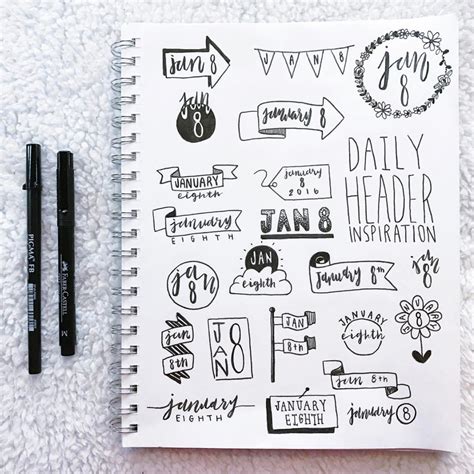 jan 8
JAN 8
jan
8
jan
8
january 8
DAILY
HEADER
INSPIRATION
JANUARY
eighth
january
8
2016
january
EIGHTH
JAN 8
jan
8
JAN
eighth
january 8th
jan
8
jan
8th
JAN
8
JAN
8th
JANUARY
eighth
JANUARY
8
jan 8th
january
EIGHTH
JANUARY
EIGHTH
january 8
PIGMA FB
FABER-CASTELL
M